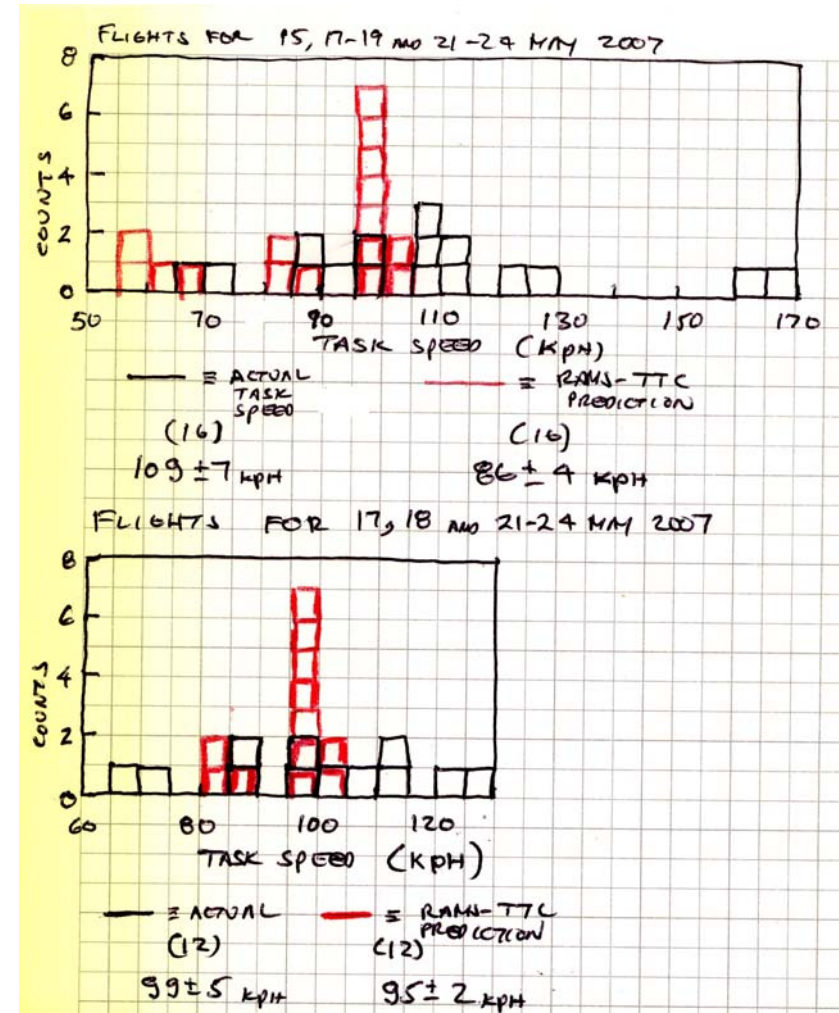 FLIGHTS FOR 15, 17-19 AND 21-24 MAY 2007
8
6
4
2
0
COUNTS
50 70 90 110 130 150 170
TASK SPEED (KPH)
≡ ACTUAL TASK SPEED
≡ RAMS-TTC PREDICTION
(16) (16)
109 ± 7 KPH 86 ± 4 KPH
FLIGHTS FOR 17, 18 AND 21-24 MAY 2007
8
6
4
2
0
COUNTS
60 80 100 120
TASK SPEED (KPH)
≡ ACTUAL
≡ RAMS-TTC PREDICTION
(12) (12)
99 ± 5 KPH 95 ± 2 KPH